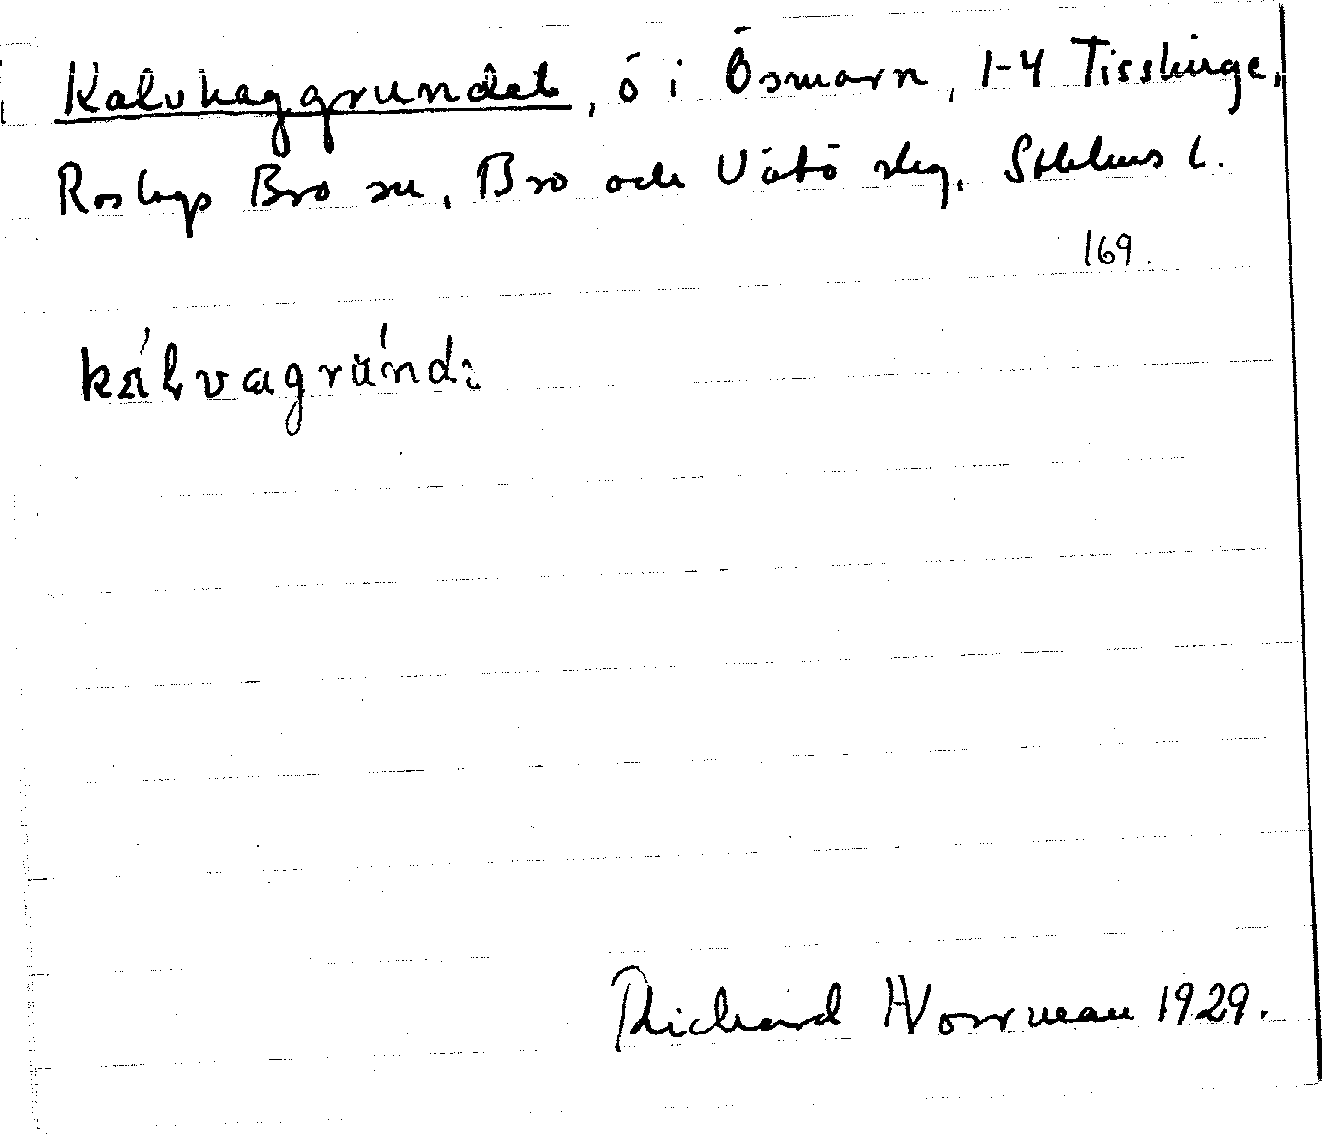 Kalvhaggrundet, ö i Ösmarn, 1-4 Tisslinge,
Roslags Bro sn, Bro och Vätö skg, Sthlms l.
169.
kálvagrúnd:
Richard Norrman 1929.